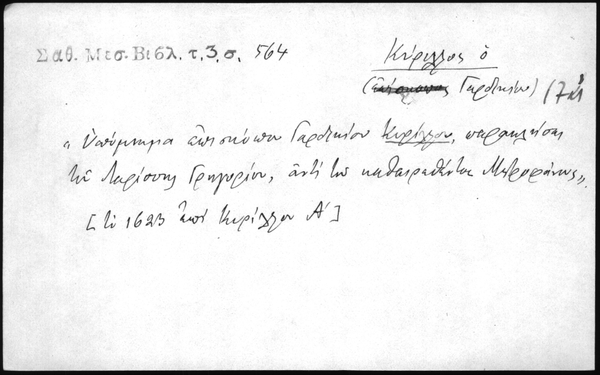 Σαθ. Μεσ. Βιβλ. τ. 3, σ. 564
Κύριλλος ὁ
(ἐπίσκοπος Γαρδικίου)
"Ὑπόμνημα ἐπισκόπου Γαρδικίου Κυρίλλου, παρακλήσει
τοῦ Λαρίσσης Γρηγορίου, ἀντὶ τοῦ καθαιρεθέντος Μητροφάνους".
[τῷ 1623 ἐπὶ Κυρίλλου Α΄]